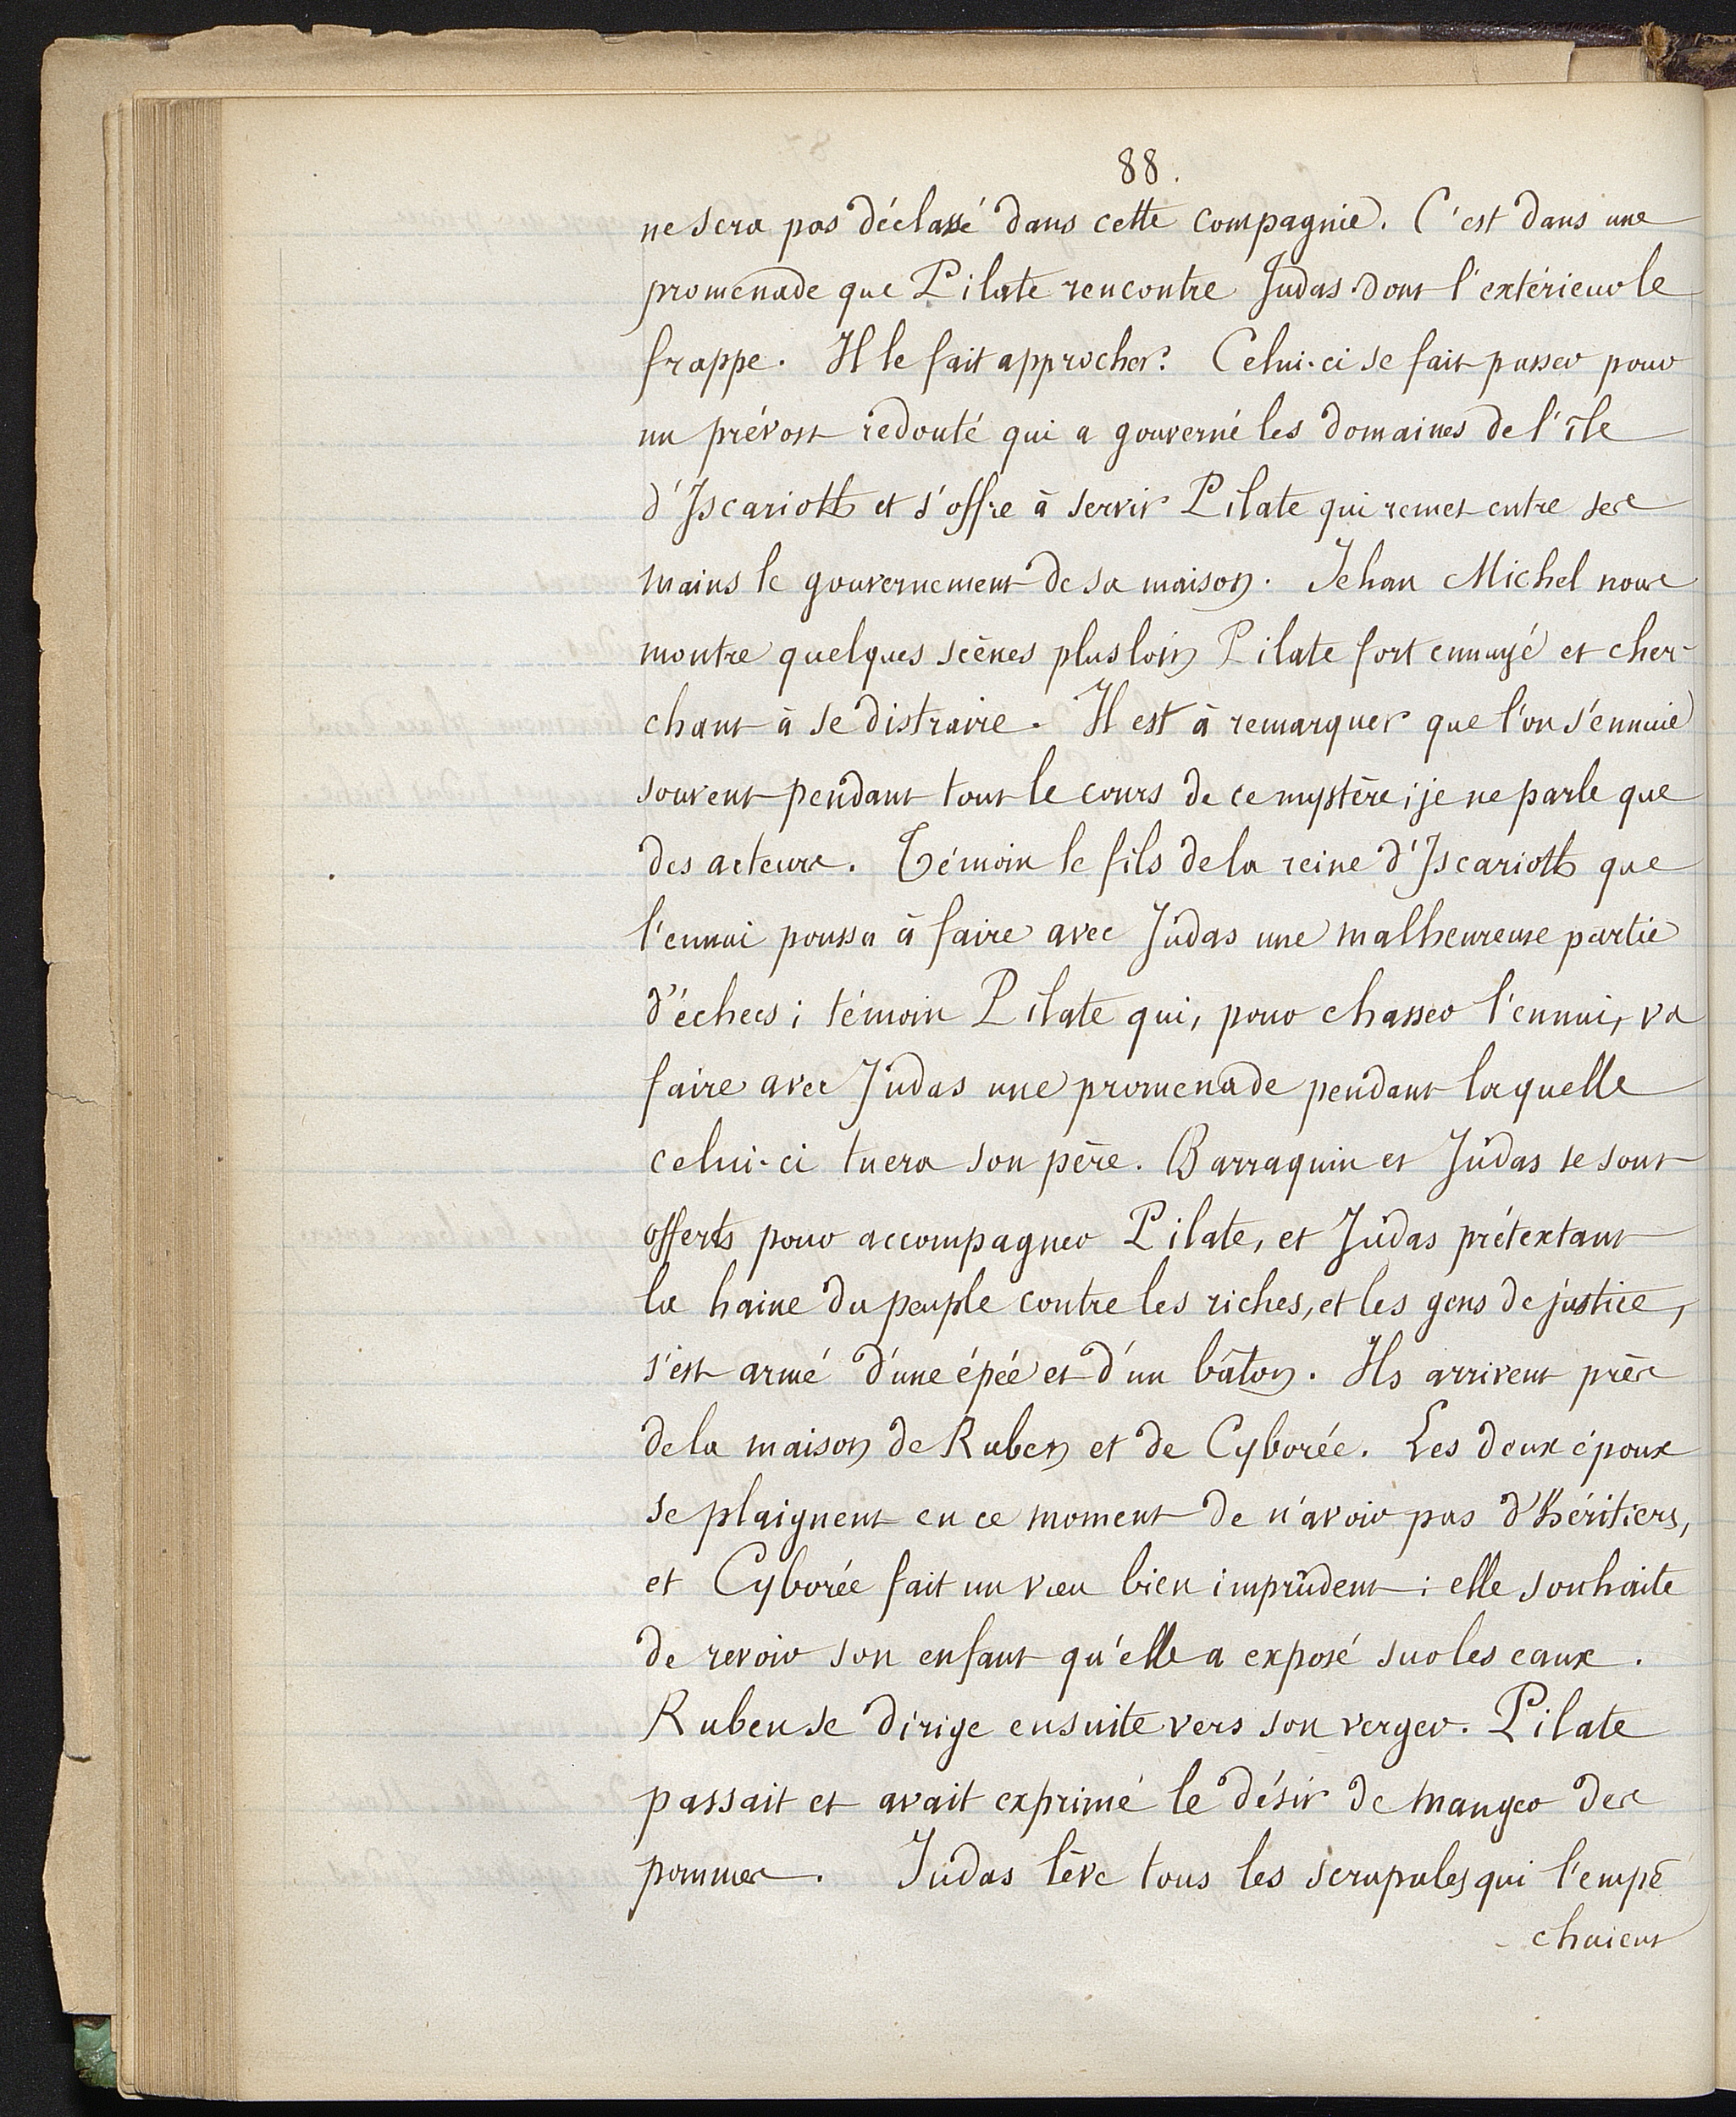 88.
ne sera pas déclassé dans cette compagnie. C'est dans une
promenade que Pilate rencontre Judas dont l'extérieur le
frappe. Il le fait approcher. Celui-ci se fait passer pour
un prévost redouté qui a gouverné les domaines de l'île
d'Iscarioth et s'offre à servir Pilate qui remet entre ses
mains le gouvernement de sa maison. Jehan Michel nous
montre quelques scènes plus loin Pilate fort ennuyé et cher-
chant à se distraire. Il est à remarquer que l'on s'ennuie
souvent pendant tout le cours de ce mystère; je ne parle que
des acteurs. Témoin le fils de la reine d'Iscarioth que
l'ennui poussa à faire avec Judas une malheureuse partie
d'échecs; témoin Pilate qui, pour chasser l'ennui, va
faire avec Judas une promenade pendant laquelle
celui-ci tuera son père. Barraquin et Judas se sont
offerts pour accompagner Pilate, et Judas prétextant
la haine du peuple contre les riches, et les gens de justice,
s'est armé d'une épée et d'un bâton. Ils arrivent près
de la maison de Ruben et de Cyborée. Les deux époux
se plaignent en ce moment de n'avoir pas d'héritiers,
et Cyborée fait un vœu bien imprudent : elle souhaite
de revoir son enfant qu'elle a exposé sur les eaux.
Ruben se dirige ensuite vers son verger. Pilate
passait et avait exprimé le désir de manger des
pommes. Judas lève tous les scrupules qui l'empê
- chaient